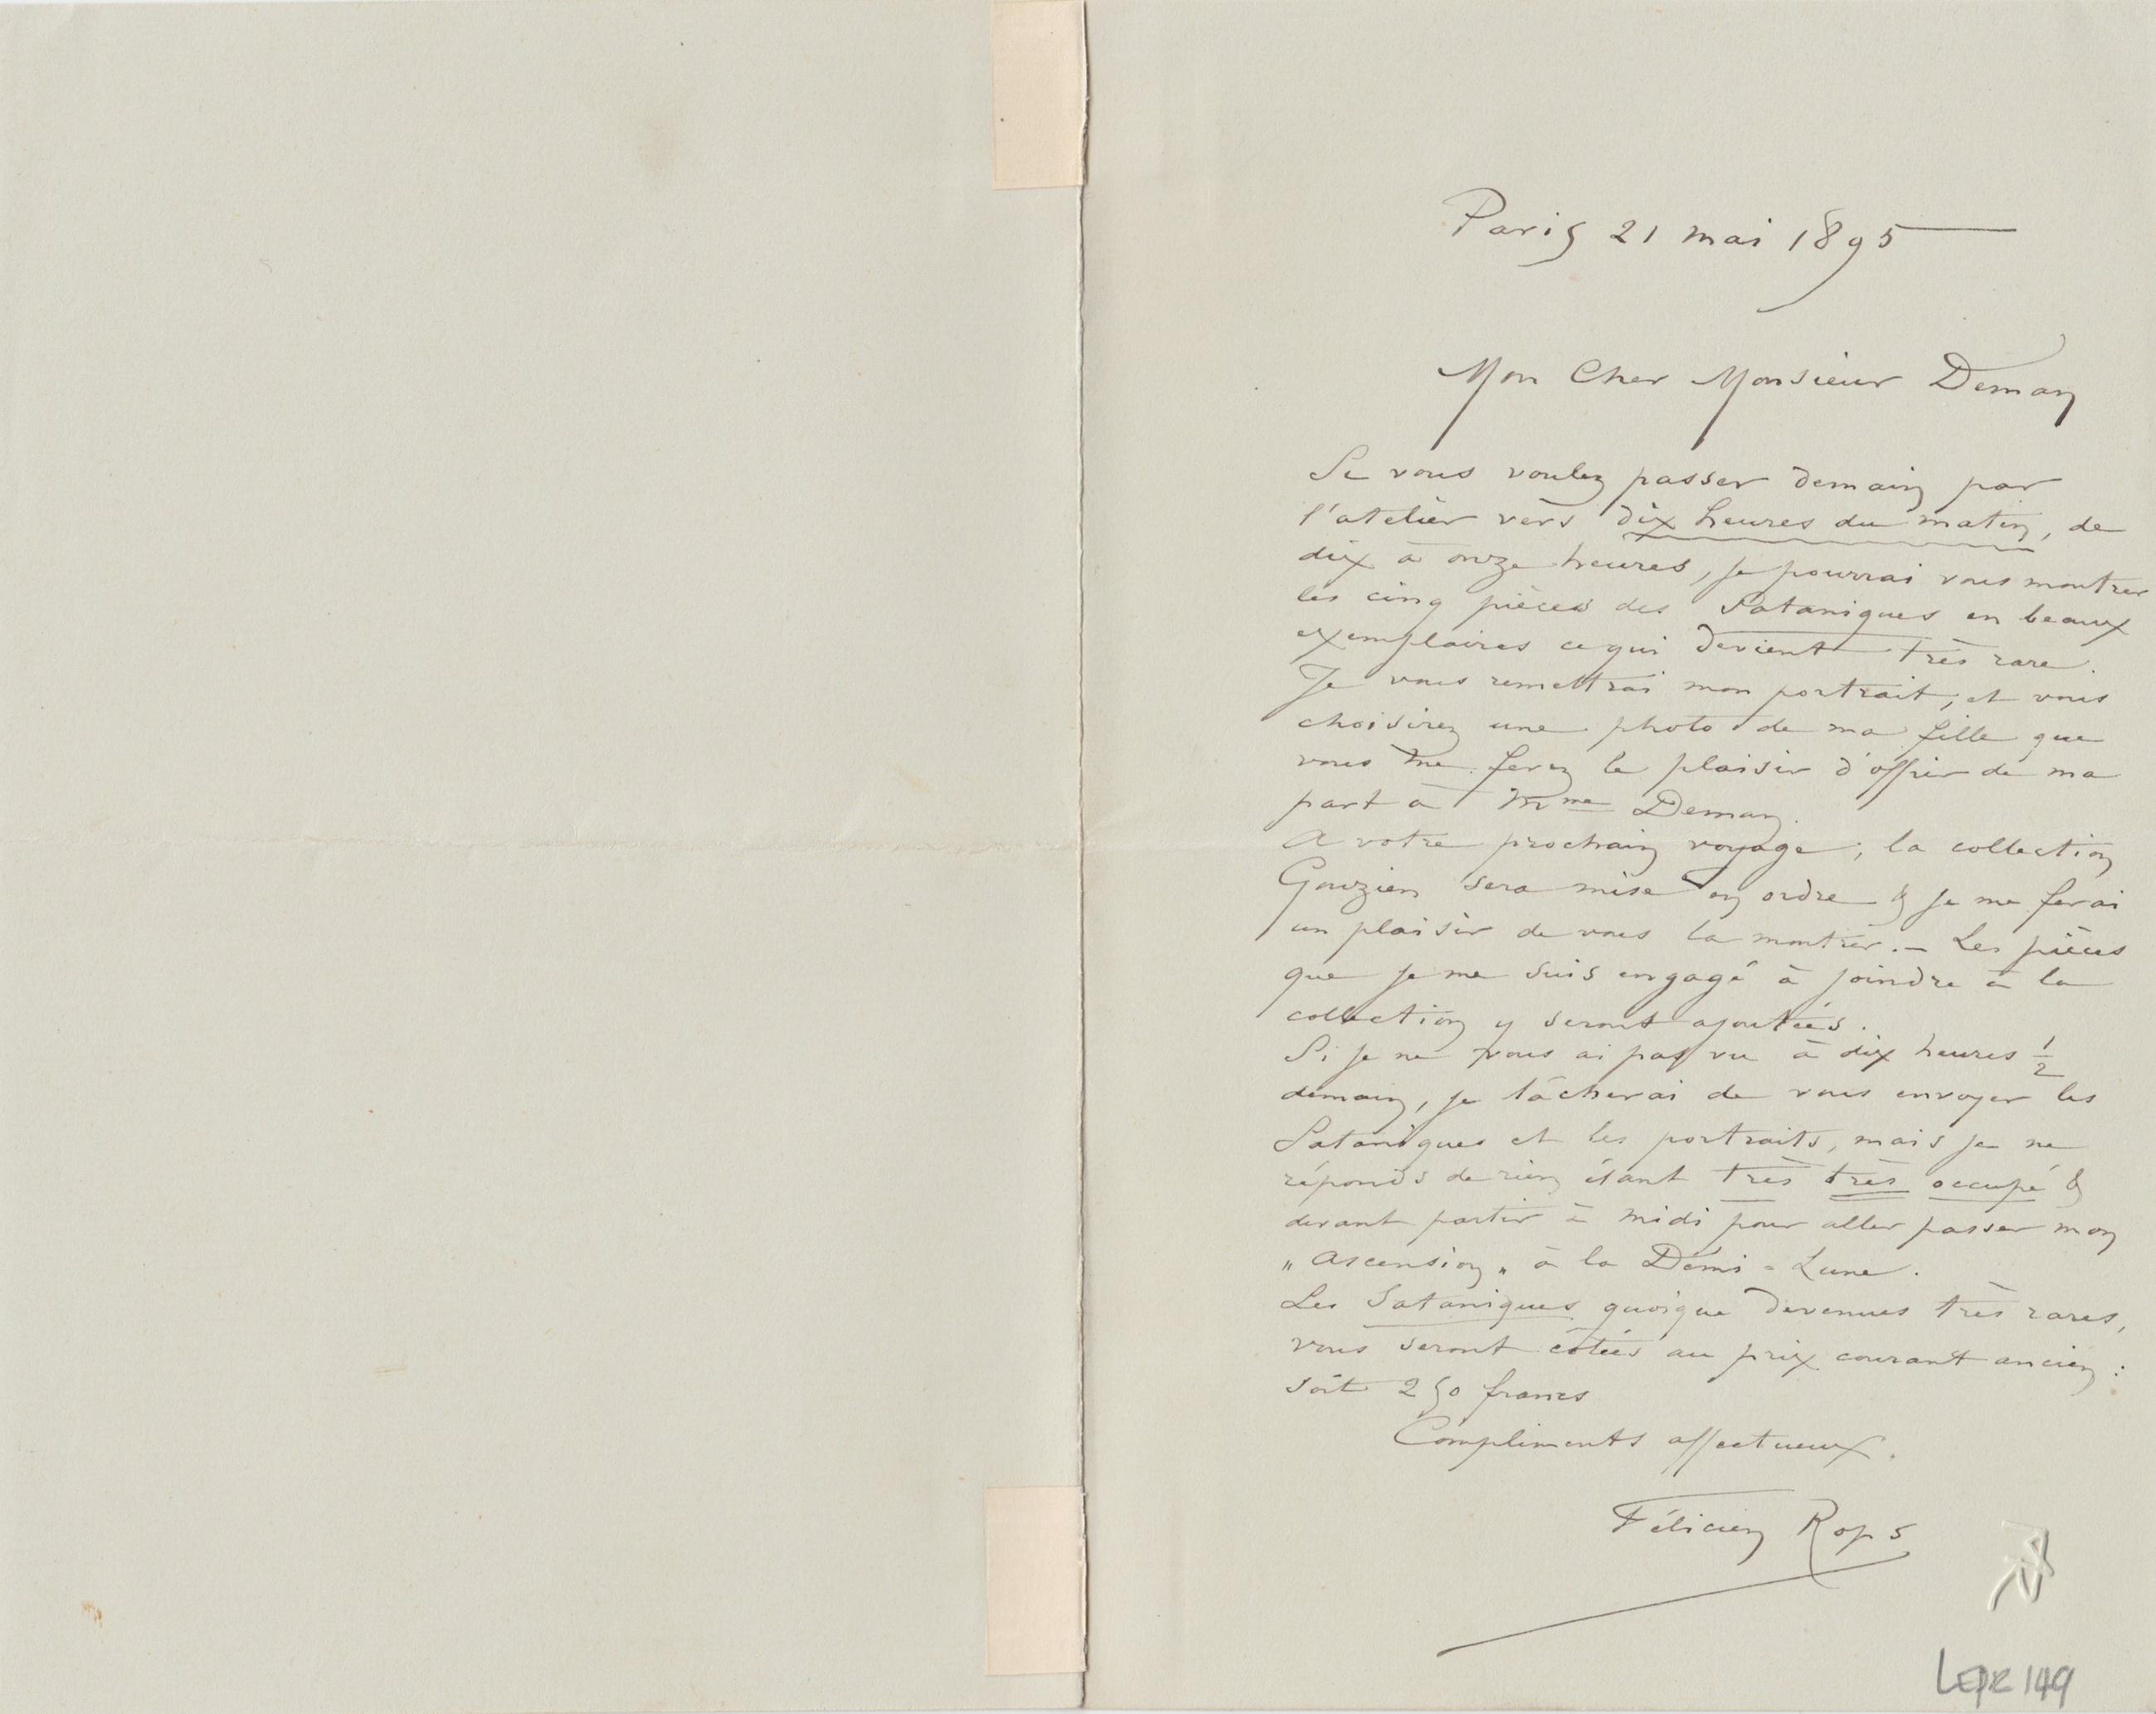 Paris 21 mai 1895
Mon Cher Monsieur Deman
Si vous voulez passer demain par
l'atelier vers dix heures du matin, de
dix à onze heures, je pourrai vous montrer
les cinq pièces des Sataniques en beaux
exemplaires ce qui devient très rare.
Je vous remettrai mon portrait, et vous
choisirez une photo de ma fille que
vous me ferez le plaisir d'offrir de ma
part à Mme Deman.
A votre prochain voyage, la collection
Gouzien sera mise en ordre & je me ferai
un plaisir de vous la montrer. – Les pièces
que je me suis engagé à joindre à la
collection y seront ajoutées.
Si je ne vous ai pas vu à dix heures 1/2
demain, je tâcherai de vous envoyer les
Sataniques et les portraits, mais je ne
réponds de rien étant très très occupé &
devant partir à midi pour aller passer mon
„Ascension„ à la Demi-Lune.
Les Sataniques quoique devenues très rares,
vous seront cotées au prix courant ancien :
soit 250 francs
Compliments affectueux.
Félicien Rops
LEpR 149